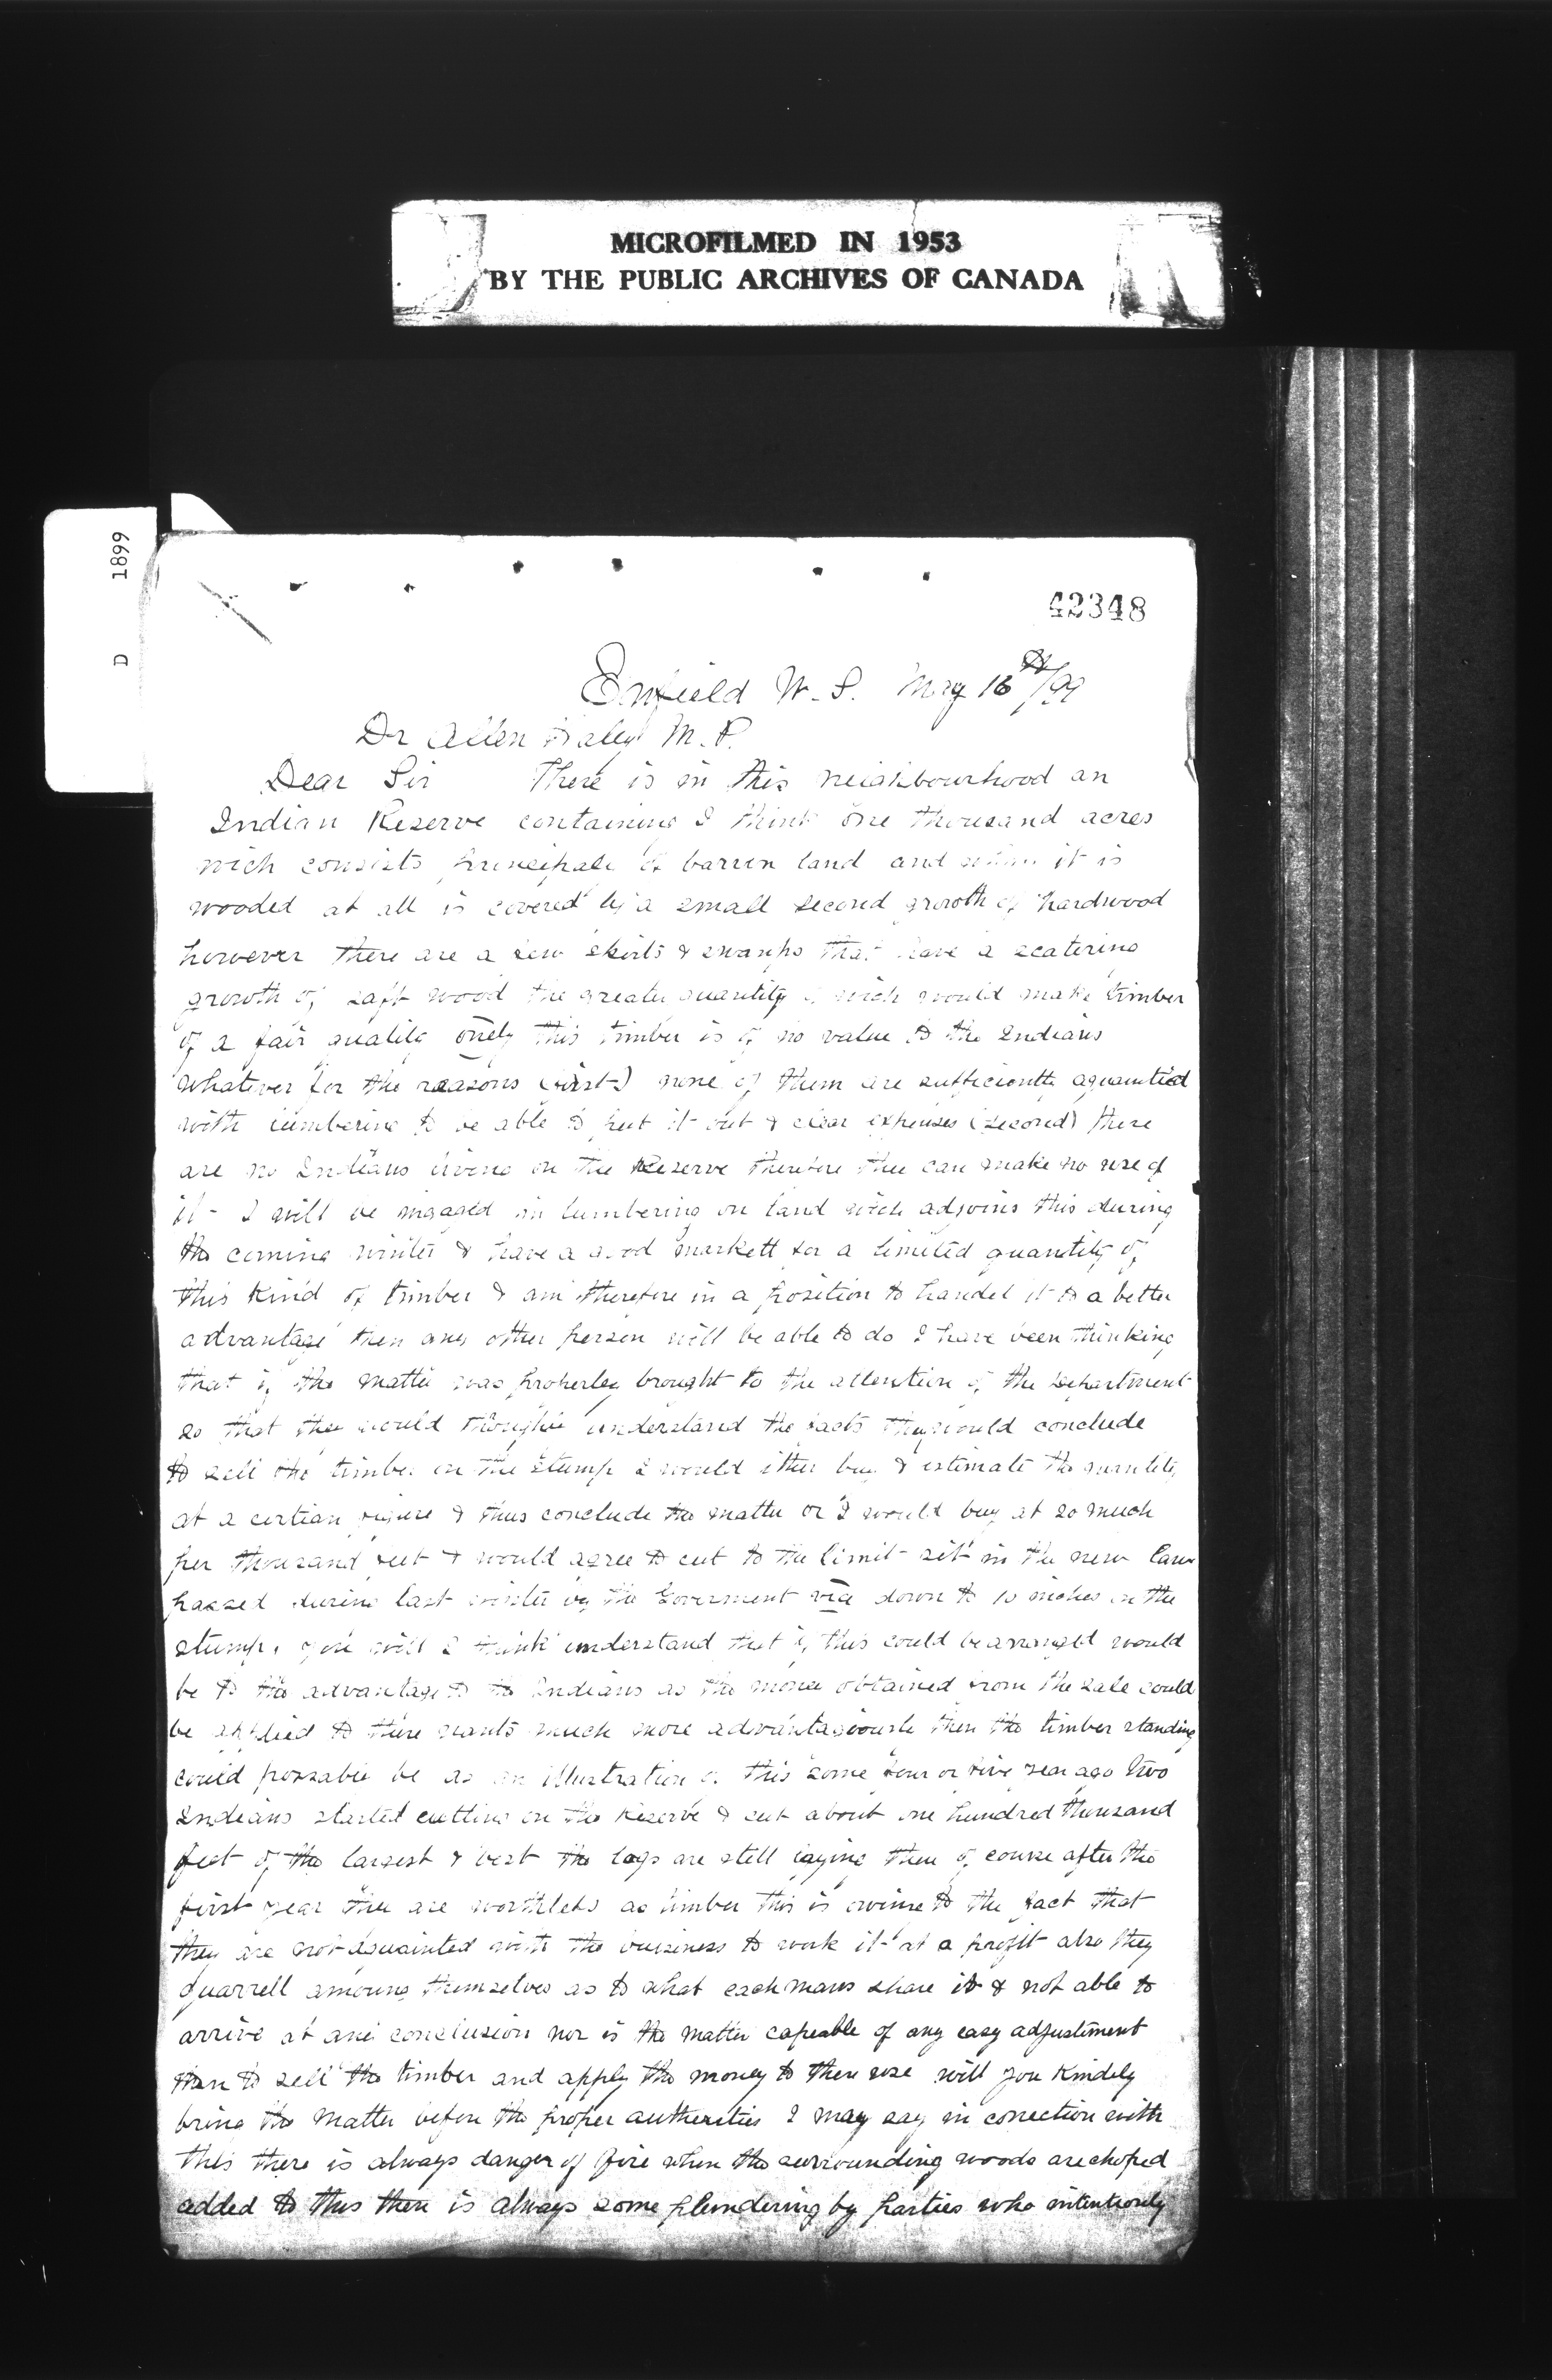 MICROFILMED IN 1953
BY THE PUBLIC ARCHIVES OF CANADA
1899
D
42348
Enfield N.S. May 16th/99
Dr Allen Haley M.P.
Dear Sir There is in this neighbourhood an
Indian Reserve containing I think one thousand acres
wich consists principale of barren land and it is
wooded at all is covered by a small second growth of hardwood
however there are a few skirts & swamps that have a scatering
growth of saft wood the greater quantity of wich would make timber
of a fair quality onely this timber is of no value to the Indians
whatever for the reasons (first) none of them are sufficiently aquantied
with lumbering to be able to put it out & clear expenses (second) there
are no Indians living on the Reserve therefore they can make no use of
it - I will be ingaged in lumbering on land wich adjoins this during
the coming winter & have a good markett for a limited quantity of
this kind of timber & am therefore in a position to handel it to a better
advantage then any other person will be able to do I have been thinking
that if the matter was properley brought to the attention of the Department
so that they would understand the facts they would conclude
to sell the timber on the stump I would ither buy & estimate the quantity
at a certian figure & thus conclude the matter or I would buy at so much
per thousand feet & would agree to cut to the limit set in the new law
passed during last winter by the Goverment viz down to 10 inches on the
stump. you will I think understand that if this could be arranged would
be to the advantage to the Indians as the money obtained from the sale could
be applied to there wants much more advantagiously then the timber standing
could possable be as an illustration of this some four or five year ago two
Indians started cutting on the Reserve & cut about one hundred thousand
feet of the largest & best the logs are still laying there of course after the
first year they are worthless as timber this is owing to the fact that
they are not aquainted with the buisiness to work it at a profit also they
quarrell amoung themselves as to what each mans share is & not able to
arrive at any conclusion nor is the matter capeable of any easy adjustiment
than to sell the timber and apply the money to there use will you kindely
bring the matter before the proper autherities I may say in conection with
this there is always danger of fire when the surrounding woods are choped
added to this there is always some plundering by parties who intentionly